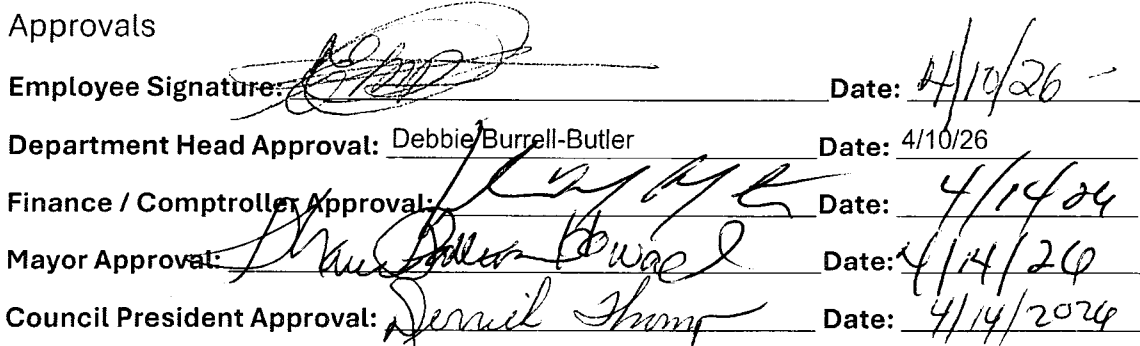 Approvals
Employee Signature: Date: 4/10/26
Department Head Approval: Debbie Burrell-Butler Date: 4/10/26
Finance / Comptroller Approval: Date: 4/14/26
Mayor Approval: Howard Date: 4/14/26
Council President Approval: Derrick Thomp Date: 4/14/2026